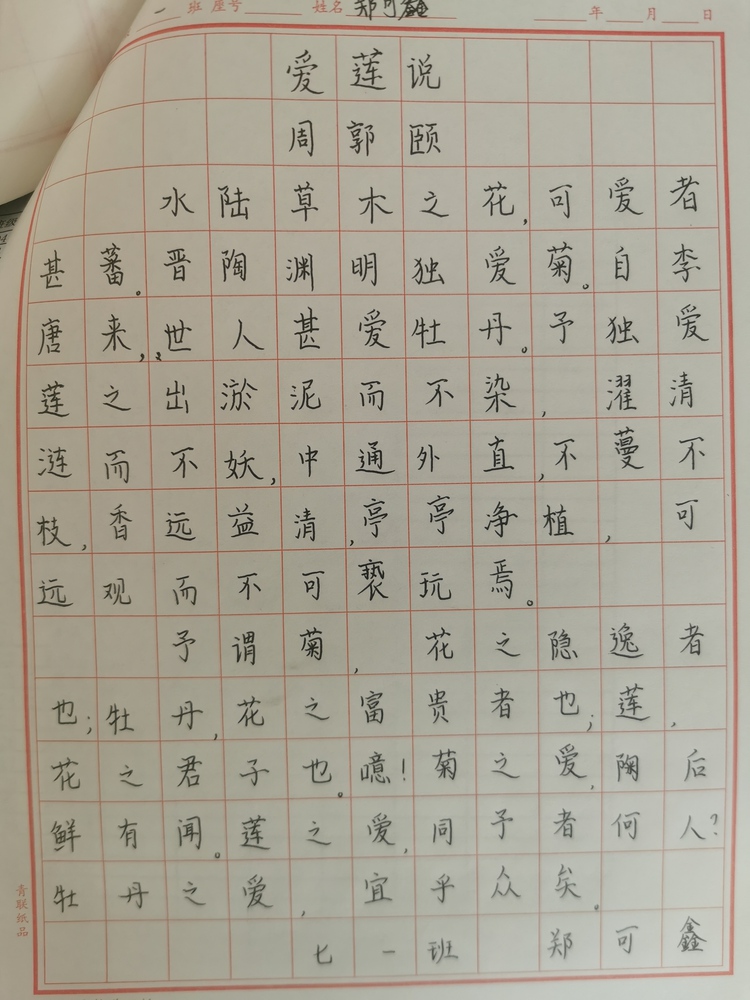 一 班 座号 姓名 郑可鑫 年 月 日
爱莲说
周郭颐
水陆草木之花,可爱者
甚蕃。晋陶渊明独爱菊。自李
唐来,世人甚爱牡丹。予独爱
莲之出淤泥而不染,濯清
涟而不妖,中通外直,不蔓不
枝,香远益清,亭亭净植,可
远观而不可亵玩焉。
予谓菊,花之隐逸者
也;牡丹,花之富贵者也;莲,
花之君子也。噫!菊之爱,陶后
鲜有闻。莲之爱,同予者何人?
牡丹之爱,宜乎众矣。
七一班 郑可鑫
青联纸品